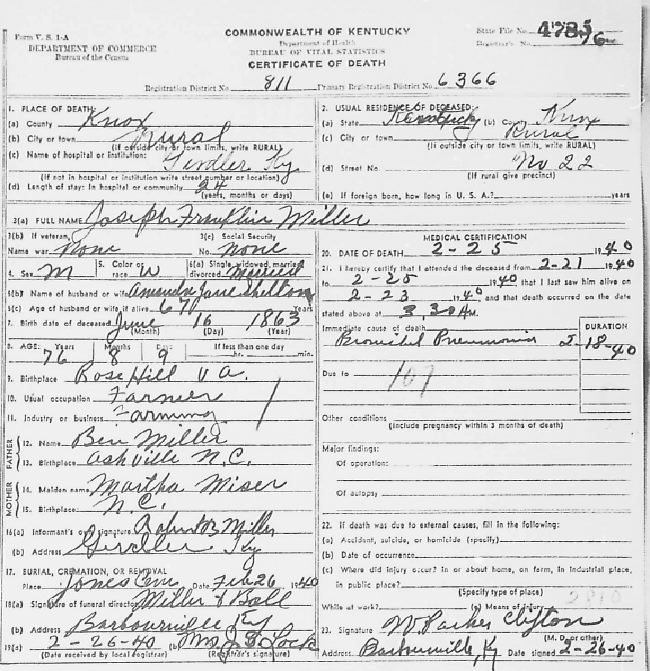 Form V. S. 1-A
DEPARTMENT OF COMMERCE
Bureau of the Census
COMMONWEALTH OF KENTUCKY
Department of Health
BUREAU OF VITAL STATISTICS
CERTIFICATE OF DEATH
State File No.
Registrar's No.
Registration District No. 811 Primary Registration District No. 6366
1. PLACE OF DEATH:
(a) County Knox
(b) City or town Rural
(If outside city or town limits, write RURAL)
(c) Name of hospital or institution: Girdler Ky
(If not in hospital or institution write street number or location)
(d) Length of stay: In hospital or community 24
(years, months or days)
2. USUAL RESIDENCE OF DECEASED:
(a) State Kentucky (b) County Knox
(c) City or town Rural
(If outside city or town limits, write RURAL)
(d) Street No. No 22
(If rural give precinct)
(e) If foreign born, how long in U. S. A.? years
3(a) FULL NAME Joseph Franklin Miller
3(b) If veteran,
Name war None
3(c) Social Security
No. none
4. Sex M
5. Color or
race W
6(a) Single, widowed, married,
divorced Married
6(b) Name of husband or wife Amanda Jane Shelton
6(c) Age of husband or wife if alive 67 Years
7. Birth date of deceased June 16 1863
(Month) (Day) (Year)
8. AGE: Years Months Days If less than one day
76 8 9 hr. min.
9. Birthplace Rose Hill Va.
10. Usual occupation Farmer
11. Industry or business Farming
FATHER
12. Name Ben Miller
13. Birthplace Ashville N.C.
MOTHER
14. Maiden name Martha Miser
15. Birthplace N.C.
16(a) Informant's own signature Robert B Miller
(b) Address Girdler Ky
17. BURIAL, CREMATION, OR REMOVAL
Place Jones Cem Date Feb 26 1940
18(a) Signature of funeral director Miller & Ball
(b) Address Barbourville Ky
19(a) 2-26-40 (b) Mrs J. S. Lock
(Date received by local registrar) (Registrar's signature)
MEDICAL CERTIFICATION
20. DATE OF DEATH 2-25 1940
21. I hereby certify that I attended the deceased from 2-21 1940
to 2-25 1940 that I last saw him alive on
2-23 1940 and that death occurred on the date
stated above at 3:30 A M.
Immediate cause of death
Bronchial Pneumonia
DURATION
2-18-40
Due to 107
Other conditions
(Include pregnancy within 3 months of death)
Major findings:
Of operation:
Of autopsy
22. If death was due to external causes, fill in the following:
(a) Accident, suicide, or homicide (specify)
(b) Date of occurrence
(c) Where did injury occur? In or about home, on farm, in industrial place,
in public place?
(Specify type of place)
While at work? (e) Means of injury
23. Signature W Parker Clifton
(M. D. or other)
Address Barbourville, Ky Date signed 2-26-40